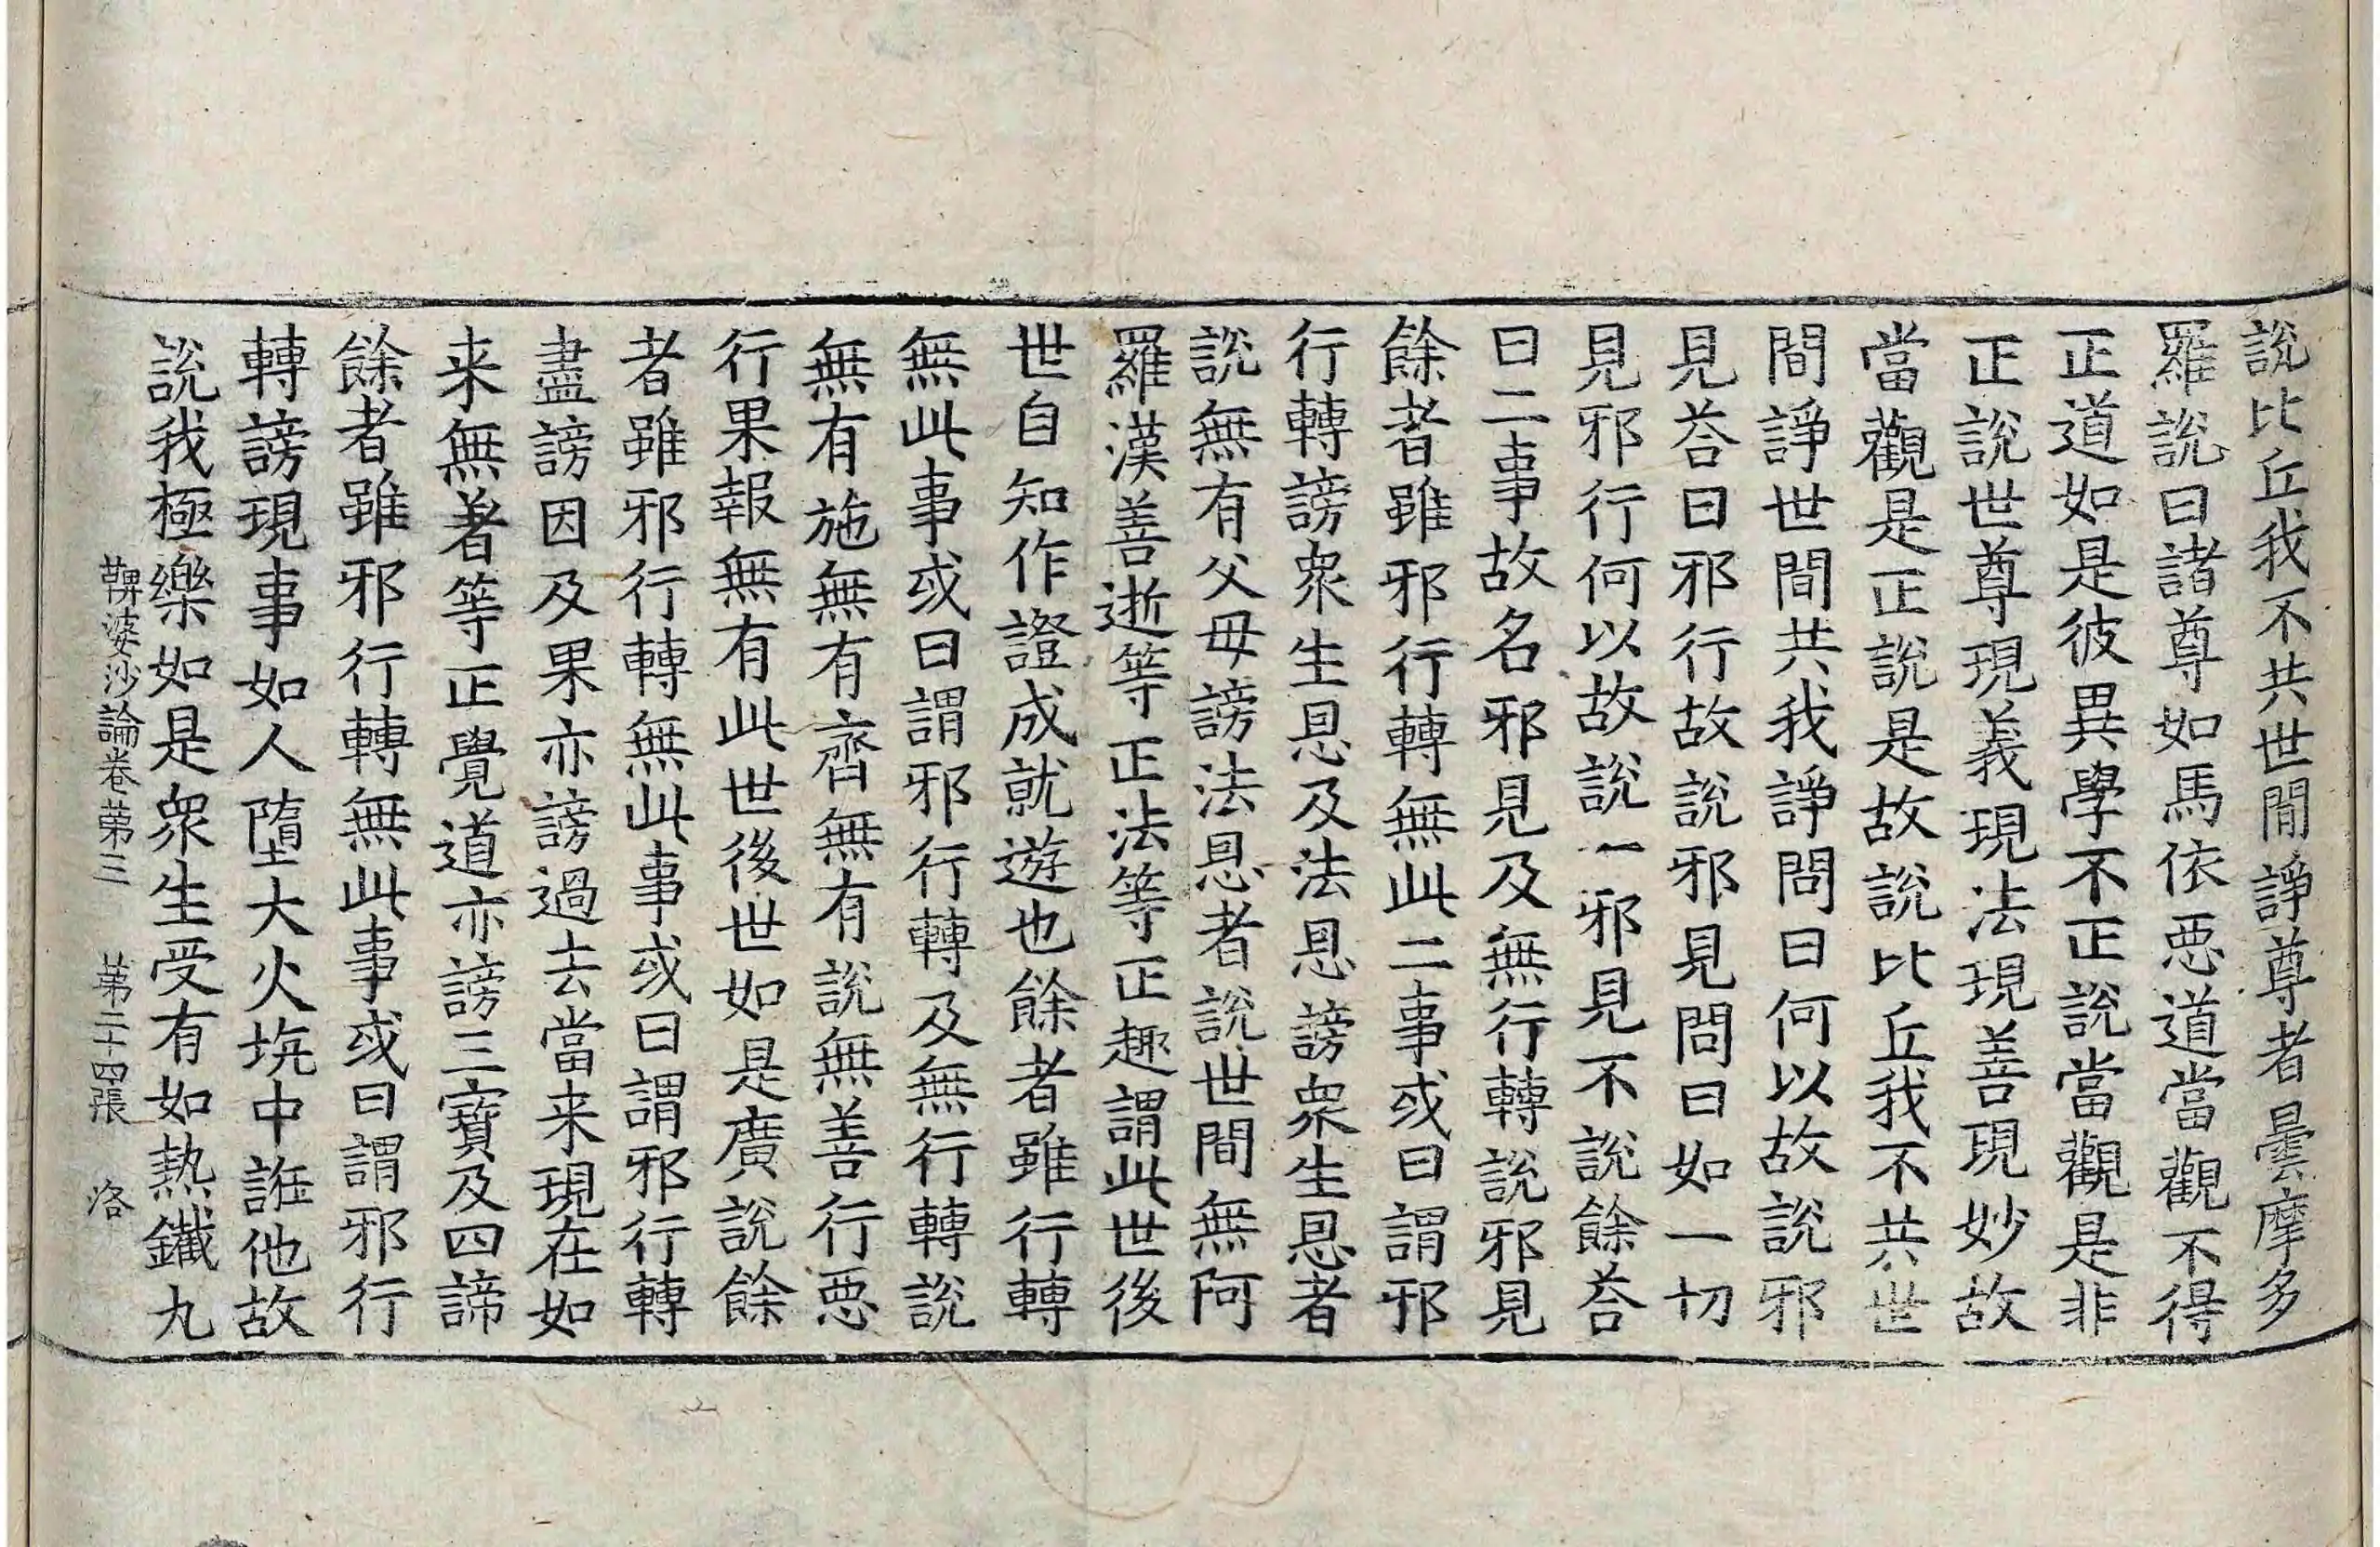 說比丘我不共世間諍尊者曇摩多
羅說曰諸尊如馬依惡道當觀不得
正道如是彼異學不正說當觀是非
正說世尊現義現法現善現妙故
當觀是正說是故說比丘我不共世
間諍世間共我諍問曰何以故說邪
見荅曰邪行故說邪見問曰如一切
見邪行何以故說一邪見不說餘荅
曰二事故名邪見及無行轉說邪見
餘者雖邪行轉無此二事或曰謂邪
行轉謗衆生恩及法恩謗衆生恩者
說無有父母謗法恩者說世間無阿
羅漢善逝等正法等正趣謂此世後
世自知作證成就遊也餘者雖行轉
無此事或曰謂邪行轉及無行轉說
無有施無有齊無有說無善行惡
行果報無有此世後世如是廣說餘
者雖邪行轉無此事或曰謂邪行轉
盡謗因及果亦謗過去當来現在如
来無著等正覺道亦謗三寶及四諦
餘者雖邪行轉無此事或曰謂邪行
轉謗現事如人墮大火坑中誑他故
說我極樂如是衆生受有如熱鐵丸
鞞婆沙論卷第三 第二十四張 洛